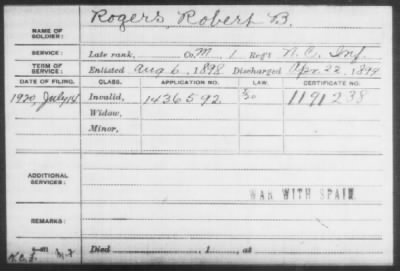 Rogers, Robert B.
NAME OF SOLDIER:
SERVICE: Late rank, Co. M, 1 Reg't N.C. Inf.
TERM OF SERVICE: Enlisted Aug 6, 1898 Discharged Apr. 22, 1899
DATE OF FILING. CLASS. APPLICATION NO. LAW. CERTIFICATE NO.
1920, July 14 Invalid, 1436592 1191238
Widow,
Minor,
ADDITIONAL SERVICES:
WAR WITH SPAIN
REMARKS:
Died , 1 , at